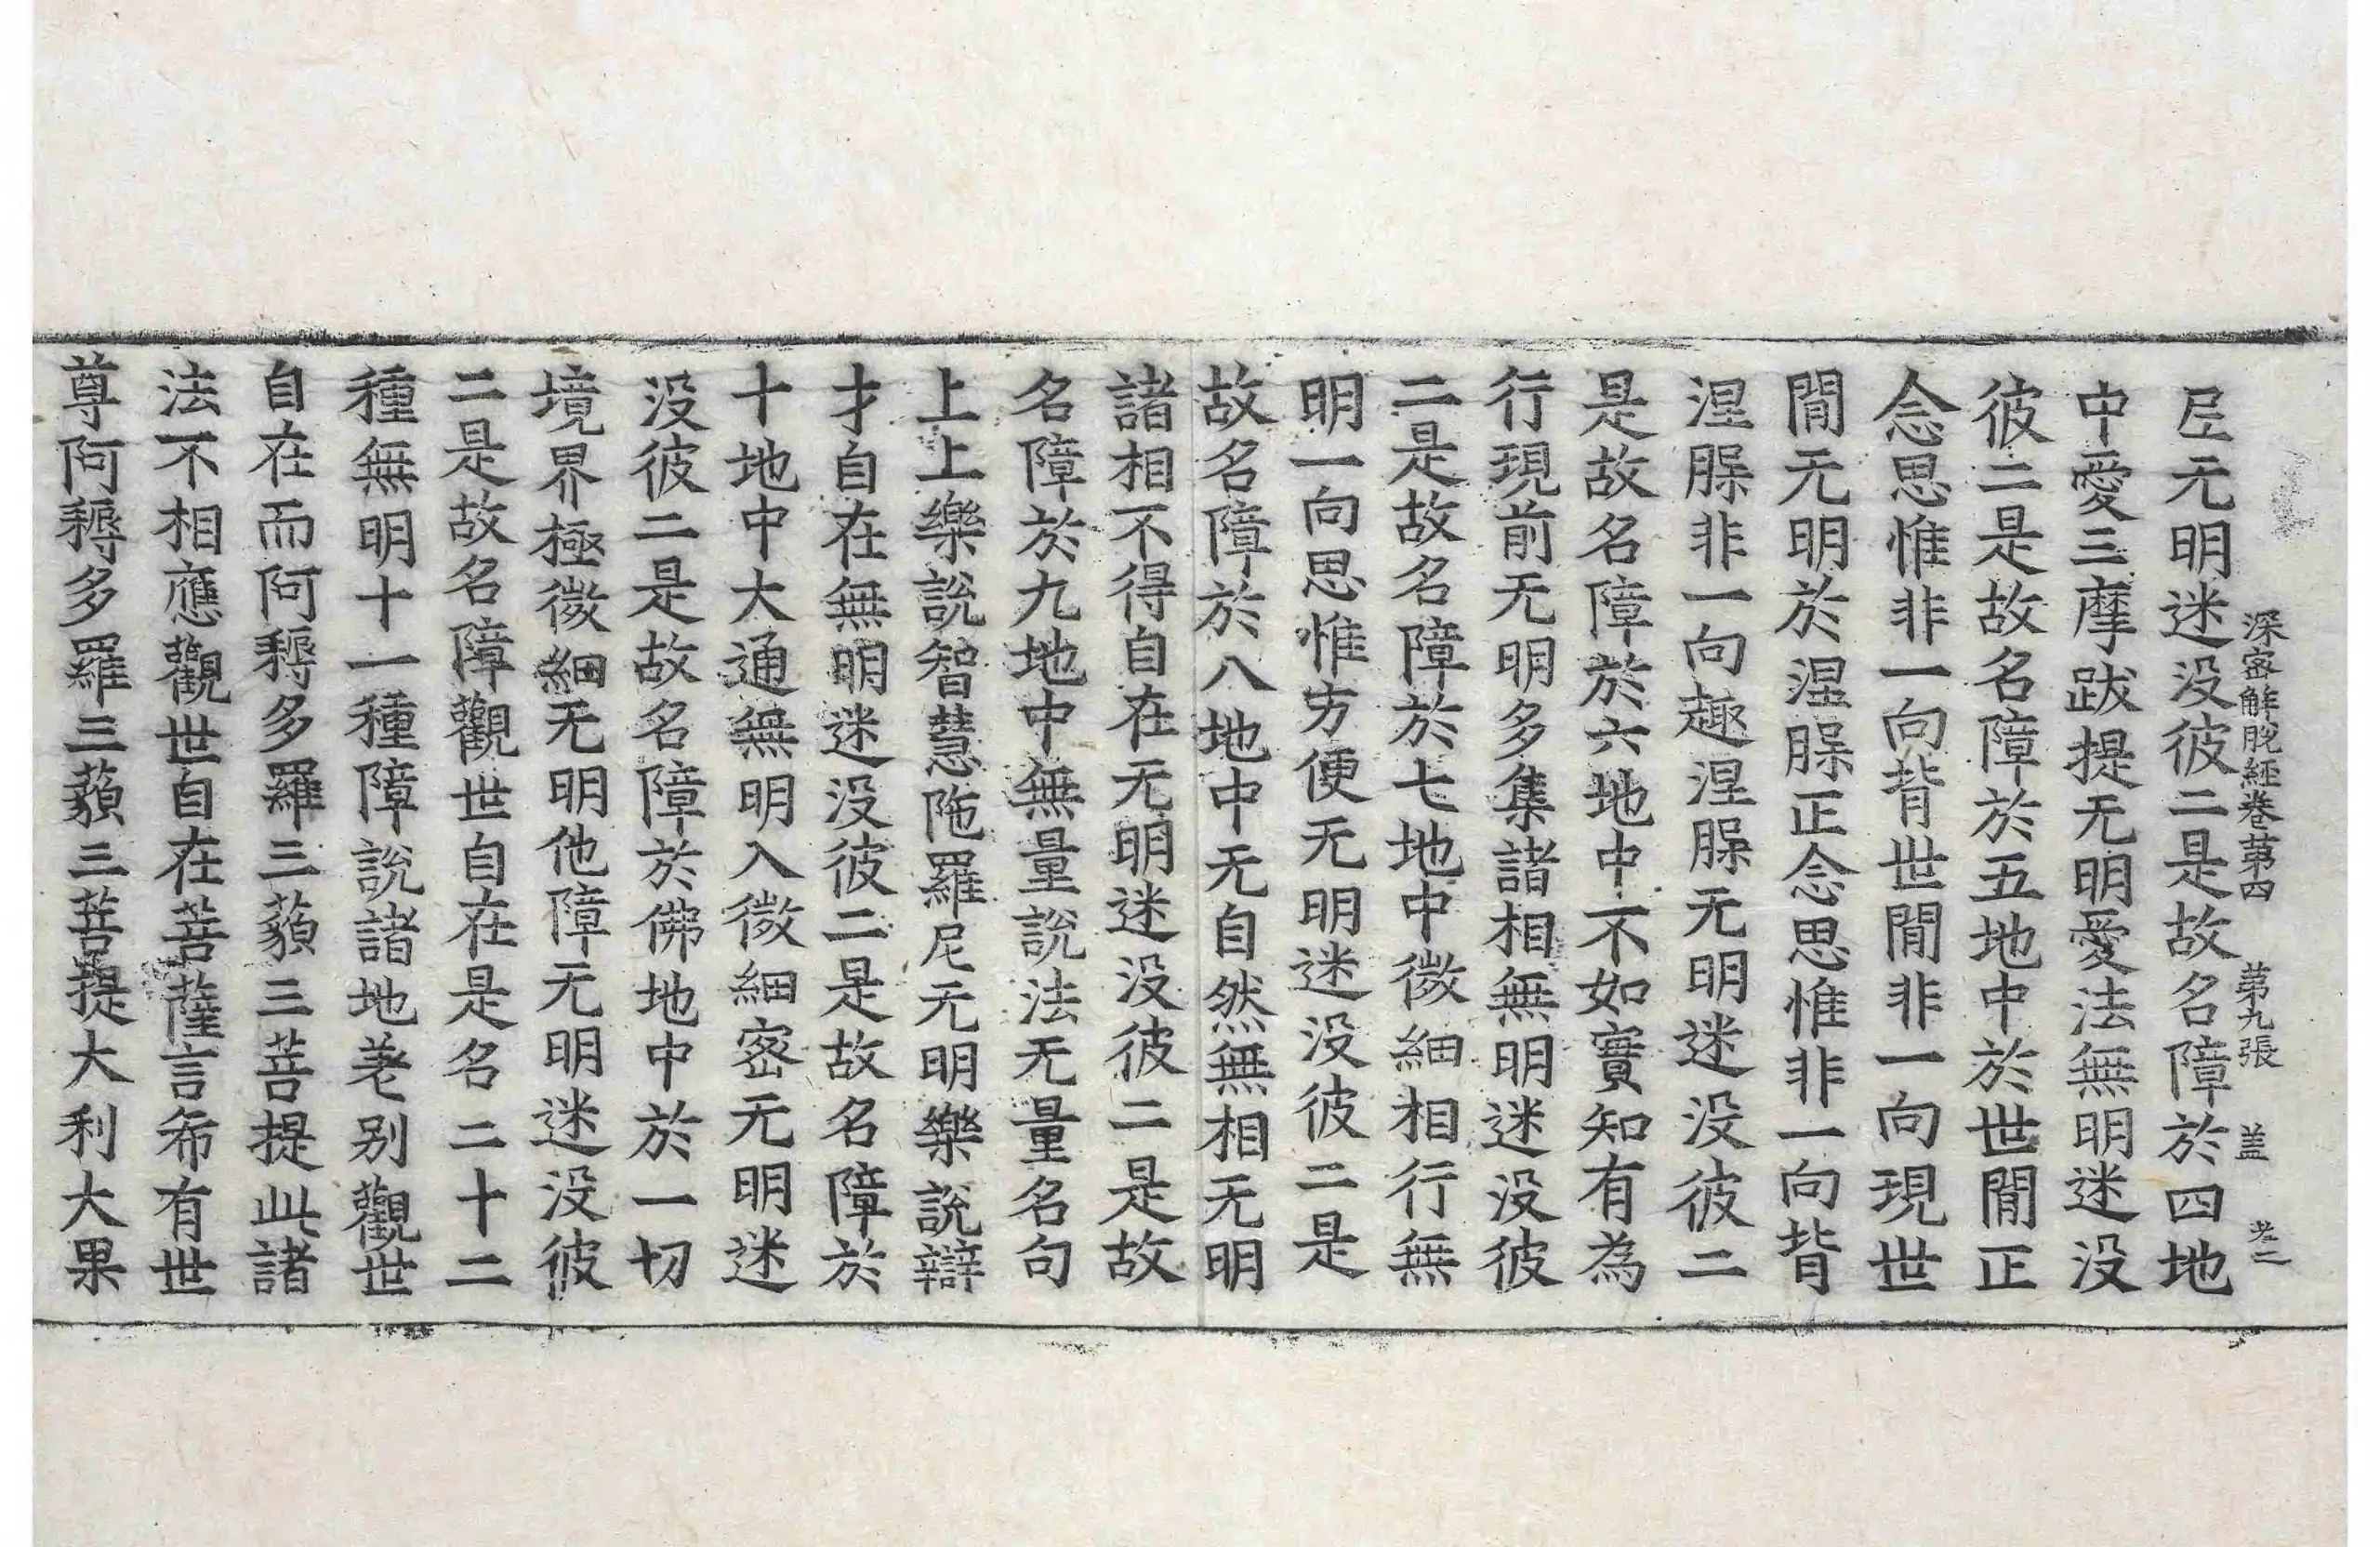 深密解脫經卷第四 第九張 盖
𡰱无明迷没彼二是故名障於四地
中愛三摩跋提无明愛法無明迷没
彼二是故名障於五地中於世閒正
念思惟非一向背世閒非一向現世
閒无明於涅槃正念思惟非一向背
涅槃非一向趣涅槃无明迷没彼二
是故名障於六地中不如實知有為
行現前无明多集諸相無明迷没彼
二是故名障於七地中微細相行無
明一向思惟方便无明迷没彼二是
故名障於八地中无自然無相无明
諸相不得自在无明迷没彼二是故
名障於九地中無量說法无量名句
上上樂說智慧陁羅尼无明樂說辯
才自在無明迷没彼二是故名障於
十地中大通無明入微細密无明迷
没彼二是故名障於佛地中於一切
境界極微細无明他障无明迷没彼
二是故名障觀世自在是名二十二
種無明十一種障說諸地差别觀世
自在而阿耨多羅三藐三菩提此諸
法不相應觀世自在菩薩言希有世
尊阿耨多羅三藐三菩提大利大果